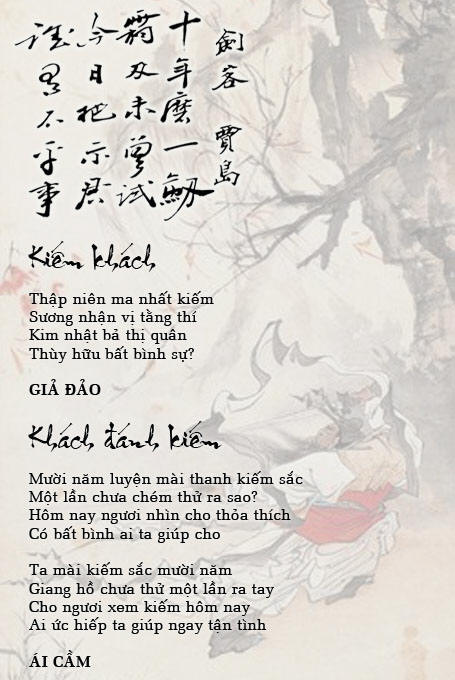 劍客 賈島
十年磨一劒
霜刃未曾試
今日把示君
誰不平事
Kiếm khách
Thập niên ma nhất kiếm
Sương nhận vị tằng thí
Kim nhật bả thị quân
Thùy hữu bất bình sự?
GIẢ ĐẢO
Khách đánh kiếm
Mười năm luyện mài thanh kiếm sắc
Một lần chưa chém thử ra sao?
Hôm nay ngươi nhìn cho thỏa thích
Có bất bình ai ta giúp cho
Ta mài kiếm sắc mười năm
Giang hồ chưa thử một lần ra tay
Cho ngươi xem kiếm hôm nay
Ai ức hiếp ta giúp ngay tận tình
ÁI CẦM